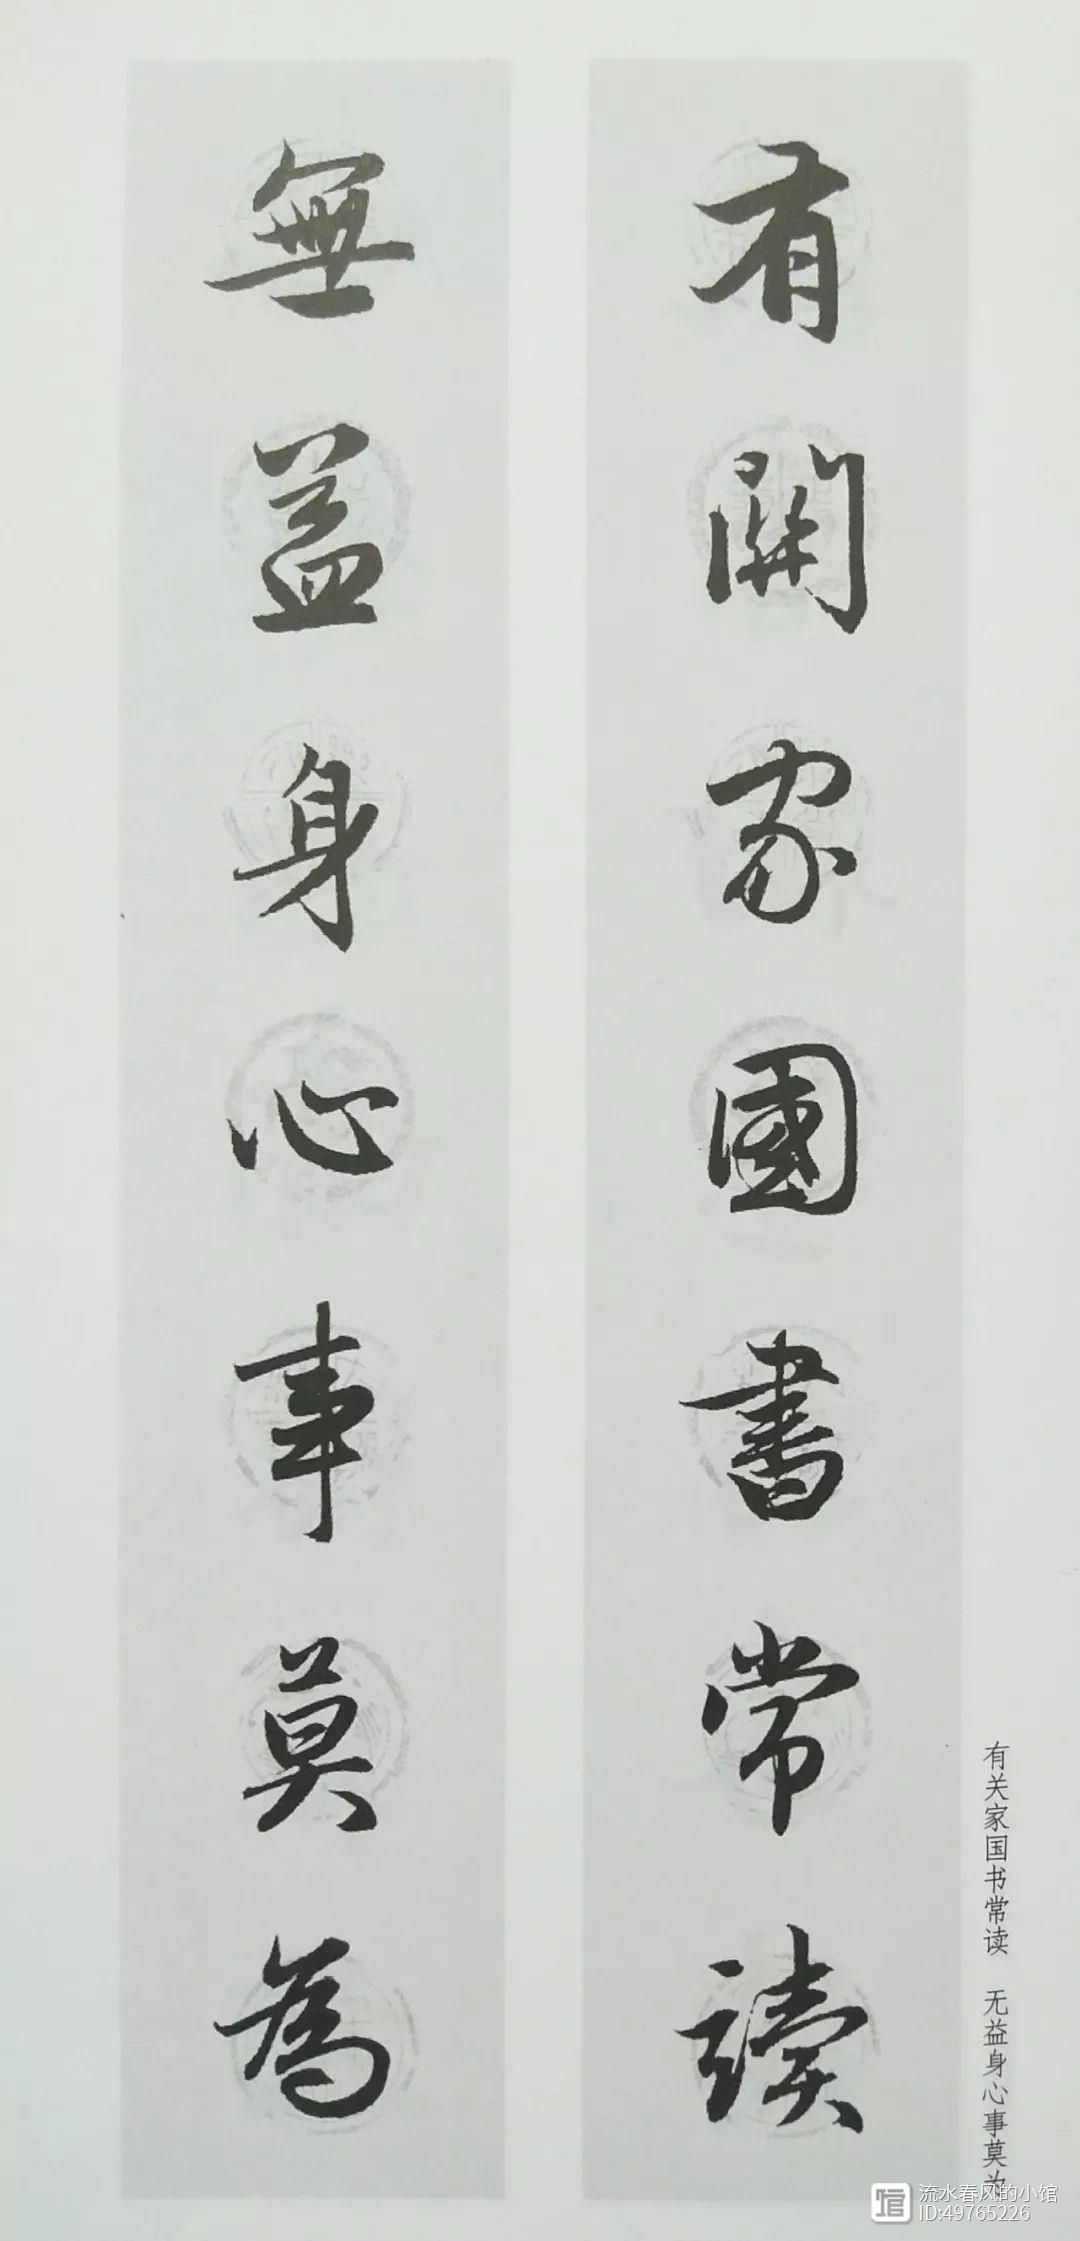 有關家國書常讀
無益身心事莫為
有关家国书常读 无益身心事莫为
流水春风的小馆
ID:49765226